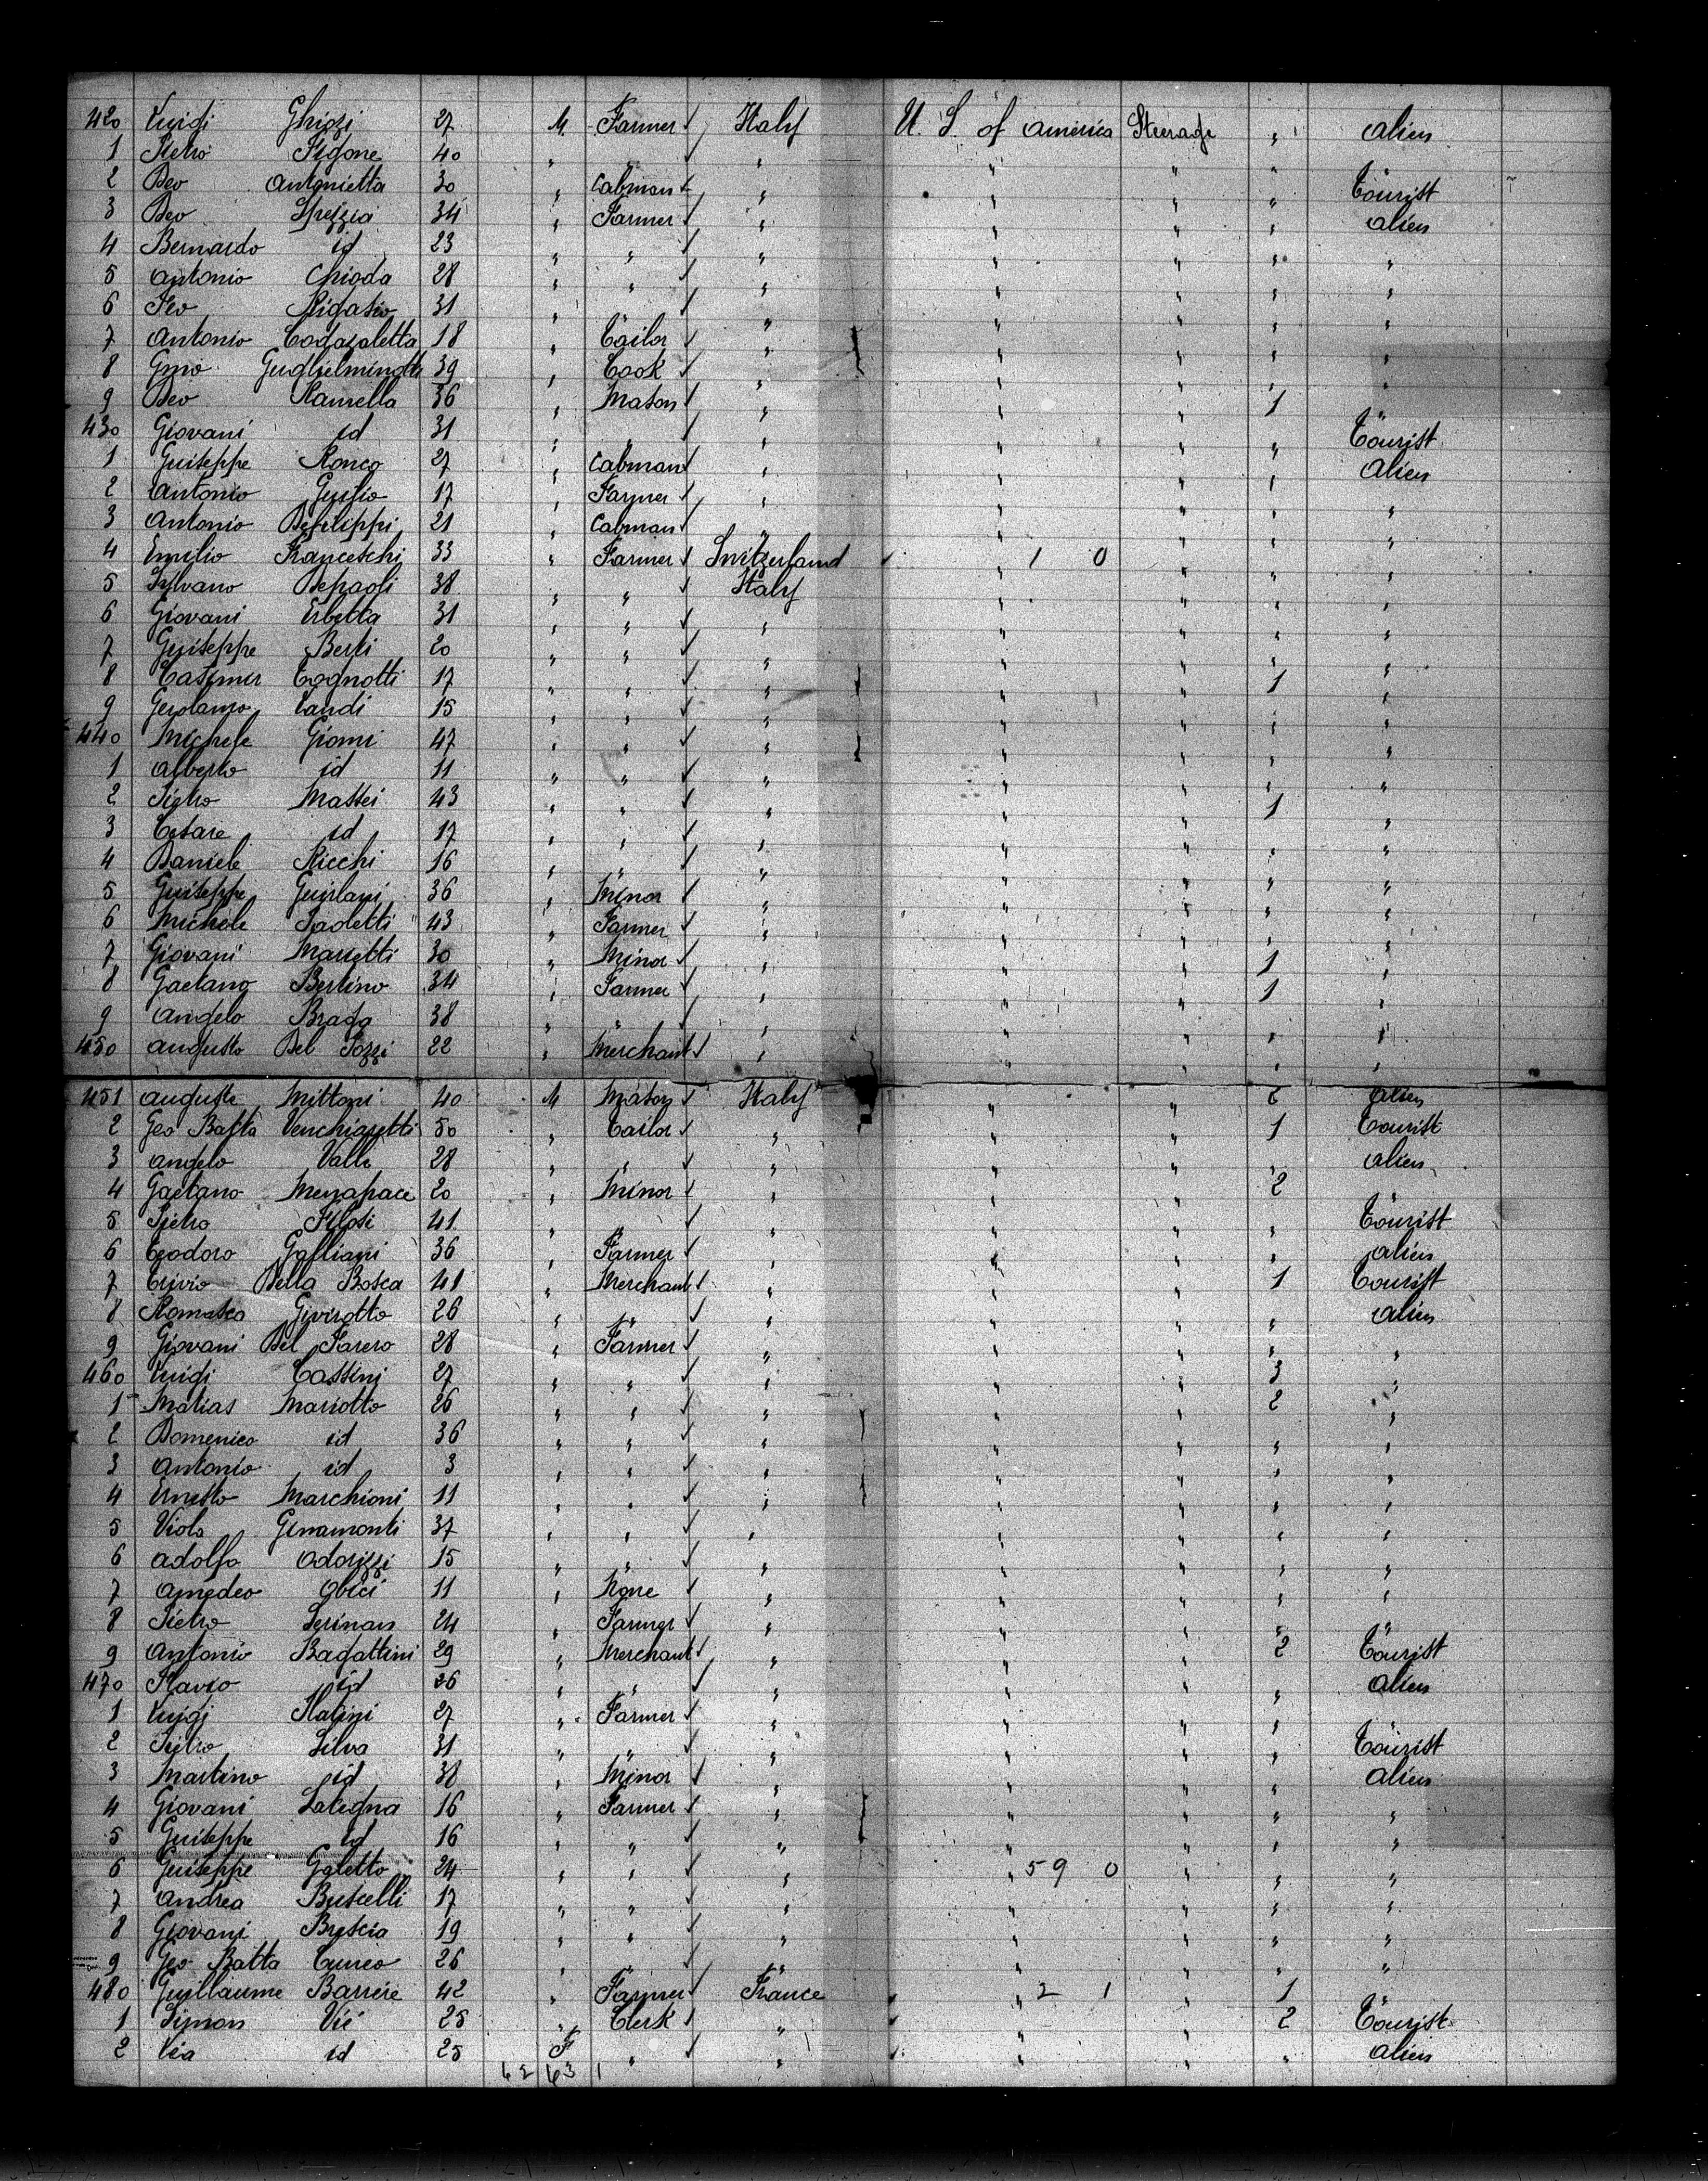 420 Luigi Ghiozi 27 M. Farmer ✓ Italy U. S. of america Steerage " alien
1 Pietro Figone 40 " " ✓ " " " " "
2 Deo Antonietta 30 " Cabman ✓ " " " " Tourist
3 Deo Spezzia 34 " Farmer ✓ " " " " alien
4 Bernardo id 23 " " ✓ " " " " "
5 Antonio Chioda 28 " " ✓ " " " " "
6 Rigasio 31 " " ✓ " " " " "
7 Antonio Codazaletta 18 " Tailor ✓ " " " " "
8 Gino Guglielminotti 39 " Cook ✓ " " " " "
9 Deo Ramella 36 " Mason ✓ " " " 1 "
430 Giovani id 31 " " ✓ " " " " Tourist
1 Guiseppe Ronco 27 " Cabman ✓ " " " " alien
2 Antonio Guglio 17 " Farmer ✓ " " " " "
3 Antonio Defilippi 21 " Cabman ✓ " " " " "
4 Emilio Franceschi 33 " Farmer ✓ Switzerland " 1 0 " " "
5 Sylvano Depaoli 38 " " ✓ Italy " " " "
6 Giovani Erbetta 31 " " ✓ " " " " "
7 Guiseppe Berti 20 " " ✓ " " " " "
8 Casimer Cognotti 17 " " ✓ " " " 1 "
9 Gerolamo Landi 15 " " ✓ " " " " "
440 Michele Giomi 47 " " ✓ " " " " "
1 Alberto id 11 " " ✓ " " " " "
2 Pietro Massei 43 " " ✓ " " " 1 "
3 Cesare id 17 " " ✓ " " " " "
4 Daniele Ricchi 16 " " ✓ " " " " "
5 Guiseppe Guirlani 36 " Minor ✓ " " " " "
6 Michele Paoletti 43 " Farmer ✓ " " " " "
7 Giovani Marietti 30 " Minor ✓ " " " 1 "
8 Gaetano Bertino 34 " Farmer ✓ " " " 1 "
9 Angelo Braga 38 " " ✓ " " " " "
450 augusto Del Pozzi 22 " Merchant ✓ " " " " "
451 auguste Mittoni 40 M Mason ✓ Italy " " 6 alien
2 Geo Batta Venchiaretti 50 " Tailor ✓ " " " 1 Tourist
3 angelo Valli 28 " " ✓ " " " " alien
4 Gaetano Menapace 20 " Minor ✓ " " " 2 "
5 Pietro Filosi 41 " " ✓ " " " " Tourist
6 Teodoro Galliani 36 " Farmer ✓ " " " " alien
7 Livio Della Bosca 41 " Merchant ✓ " " " 1 Tourist
8 Givirotto 26 " " ✓ " " " " alien
9 Giovani Del Farero 28 " Farmer ✓ " " " " "
460 Luigi Cassini 27 " " ✓ " " " 3 "
1 Matias Mariotto 26 " " ✓ " " " 2 "
2 Domenico id 36 " " ✓ " " " " "
3 Antonio id 3 " " ✓ " " " " "
4 Ernesto Marchioni 11 " " ✓ " " " " "
5 Viola Ginamonti 37 " " ✓ " " " " "
6 adolfo Odorizzi 15 " " ✓ " " " " "
7 amedeo Obici 11 " None ✓ " " " " "
8 Pietro Serinan 24 " Farmer ✓ " " " " "
9 Antonio Bagattini 29 " Merchant ✓ " " " 2 Tourist
470 Flavio id 26 " " ✓ " " " " alien
1 Luigi Slatini 27 " Farmer ✓ " " " " "
2 Pietro Silva 31 " " ✓ " " " " Tourist
3 Martino id 38 " Minor ✓ " " " " alien
4 Giovani Salegna 16 " Farmer ✓ " " " " "
5 Guiseppe id 16 " " ✓ " " " " "
6 Guiseppe Galetto 24 " " ✓ " " 59 0 " " "
7 Andrea Buscelli 17 " " ✓ " " " " "
8 Giovani Brescia 19 " " ✓ " " " " "
9 Geo Batta Cuneo 26 " " ✓ " " " " "
480 Guillaume Barrére 42 " Farmer ✓ France " 2 1 " 1 "
1 Simon Vié 25 " Clerk ✓ " " " 2 Tourist
2 Léa id 25 F " ✓ " " " " alien
62 63 1